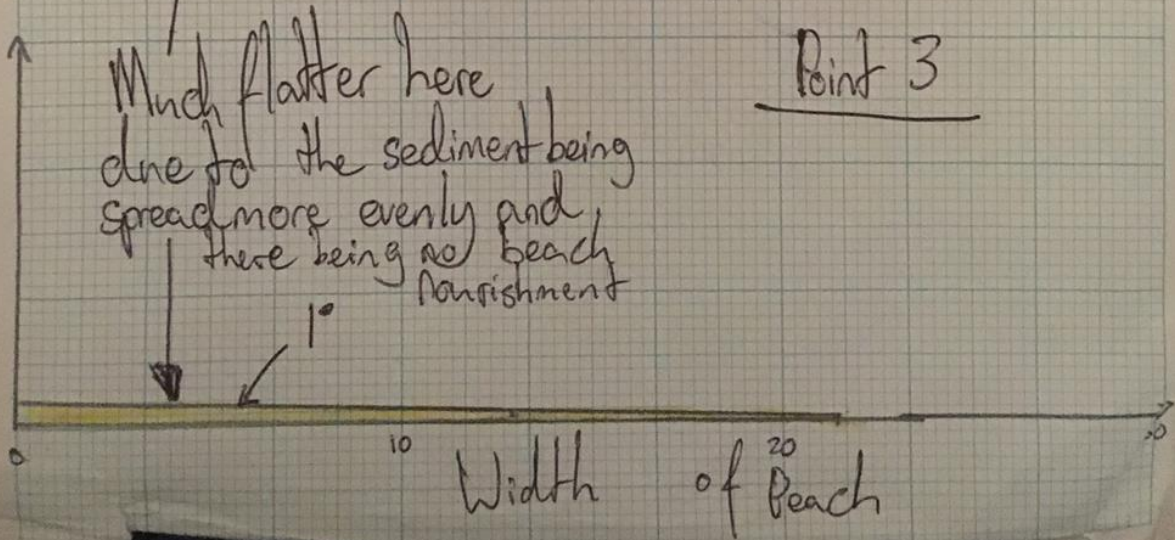 Point 3
Much flatter here
due to the sediment being
spread more evenly and,
there being no beach
nourishment
1°
0 10 20 30
Width of Beach